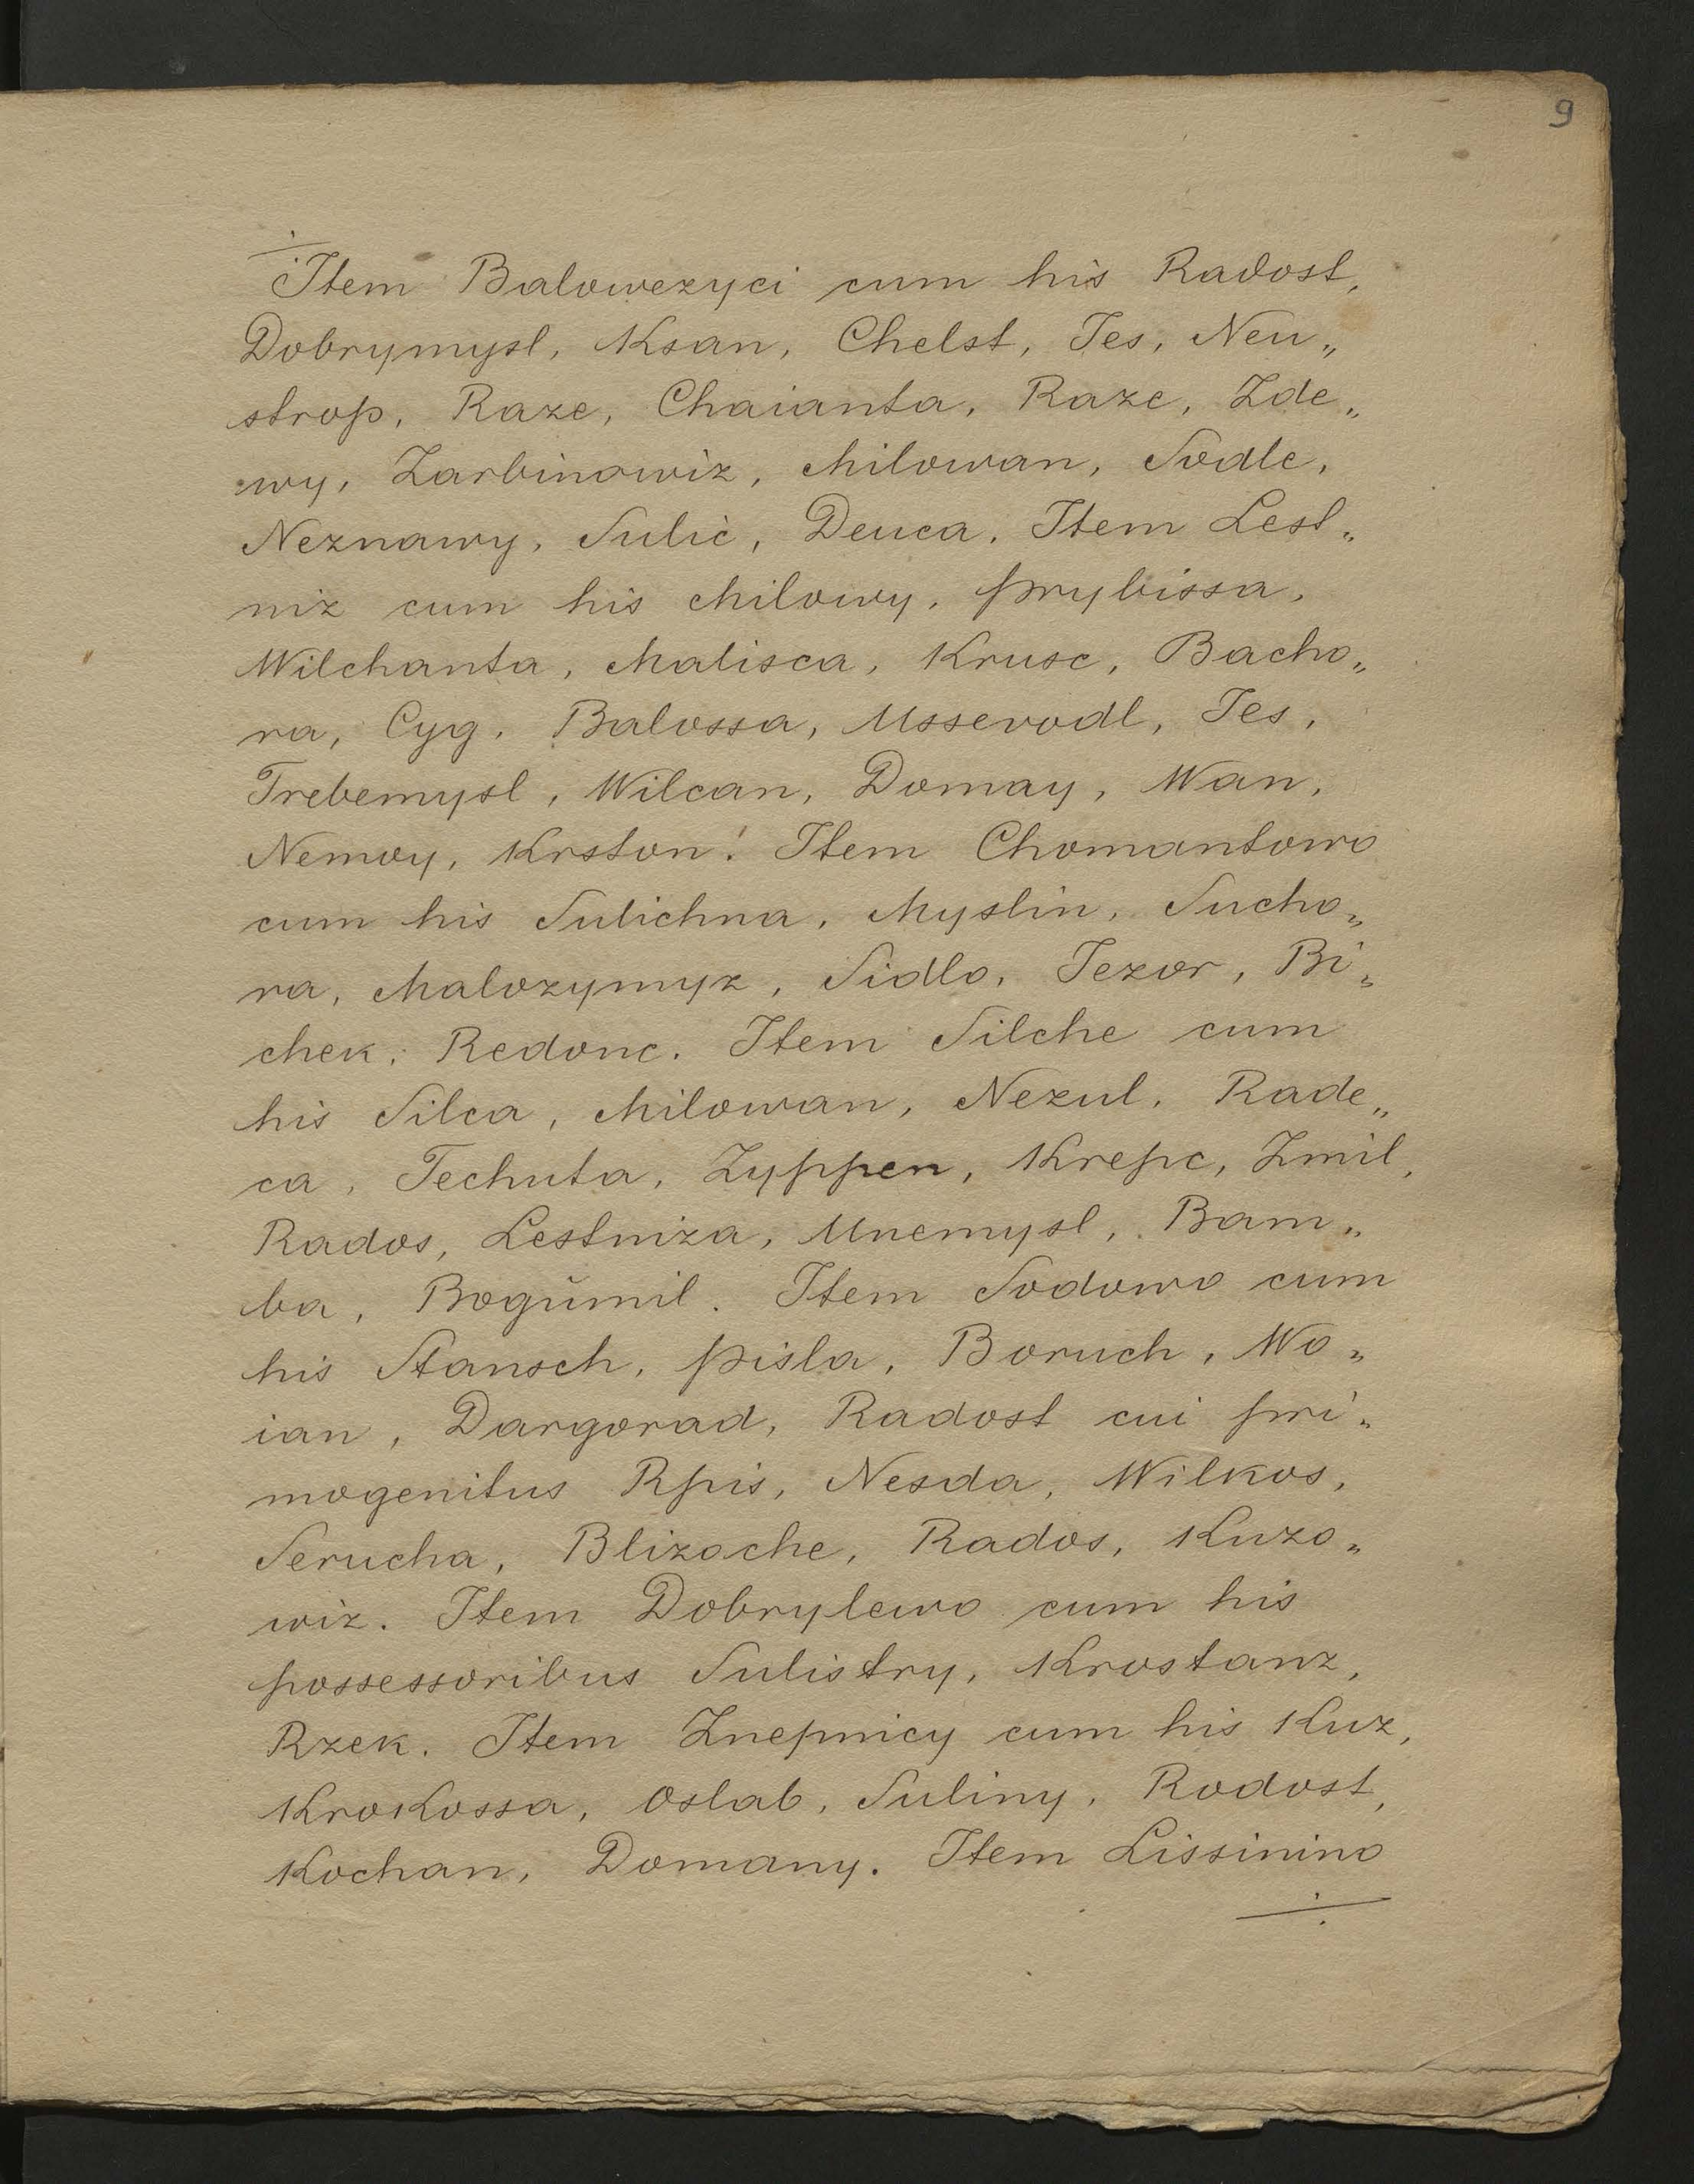 9
÷ Item Balowezyci cum his Radost,
Dobrymysl, Ksan, Chelst, Jes, Neu„
strop, Raze, Chaianta, Raze, Zde„
wy, Zarbinowiz, Milowan, Sodle,
Neznawy, Sulic, Deuca. Item Lest„
niz cum his Milowy, Prybissa,
Wilchanta, Malisca, Krusc, Bacho„
ra, Cyg. Balossa, Ussevodl, Jes,
Trebemysl, Wilcan, Domay, Wan,
Nemoy, Krston! Item Chomantowo
cum his Sulichna, Myslin, Sucho„
ra, Malozymyz, Sidlo, Jezor, Bi„
chek, Redonc. Item Silche cum
his Silca, Milowan, Nezul, Rade„
ca, Techuta, Zyppen, Krepc, Zmil,
Rados, Lestniza, Unemysl, Bam„
ba, Bogŭmil. Item Sodowo cum
his Stansch, Pisla, Boruch, Wo„
ian, Dargorad, Radost cui pri„
mogenitus Rpis, Nesda, Wilkos,
Serucha, Blizoche, Rados, Kuzo„
wiz. Item Dobrylewo cum his
possessoribus Sulistry, Krostanz,
Rzek. Item Znepnicy cum his Kuz,
Krokossa, Oslab, Suliny, Rodost,
Kochan, Domany. Item Lissinino
÷